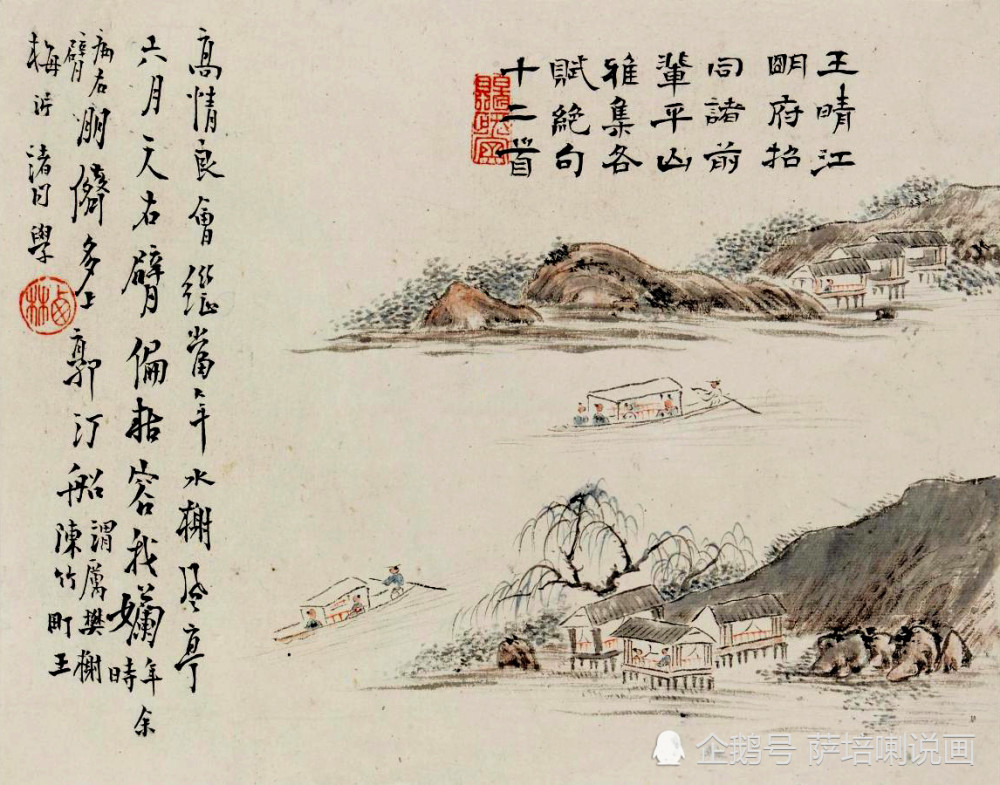 王晴江
明府招
同諸前
輩平山
雅集各
賦絕句
十二首
高情良會繼當年水榭風亭
六月天右臂偏枯容我嬾時年余
病右臂朋儔多上郭汀船謂厲樊榭陳竹町王
梅沂諸同學
企鹅号 萨培喇说画